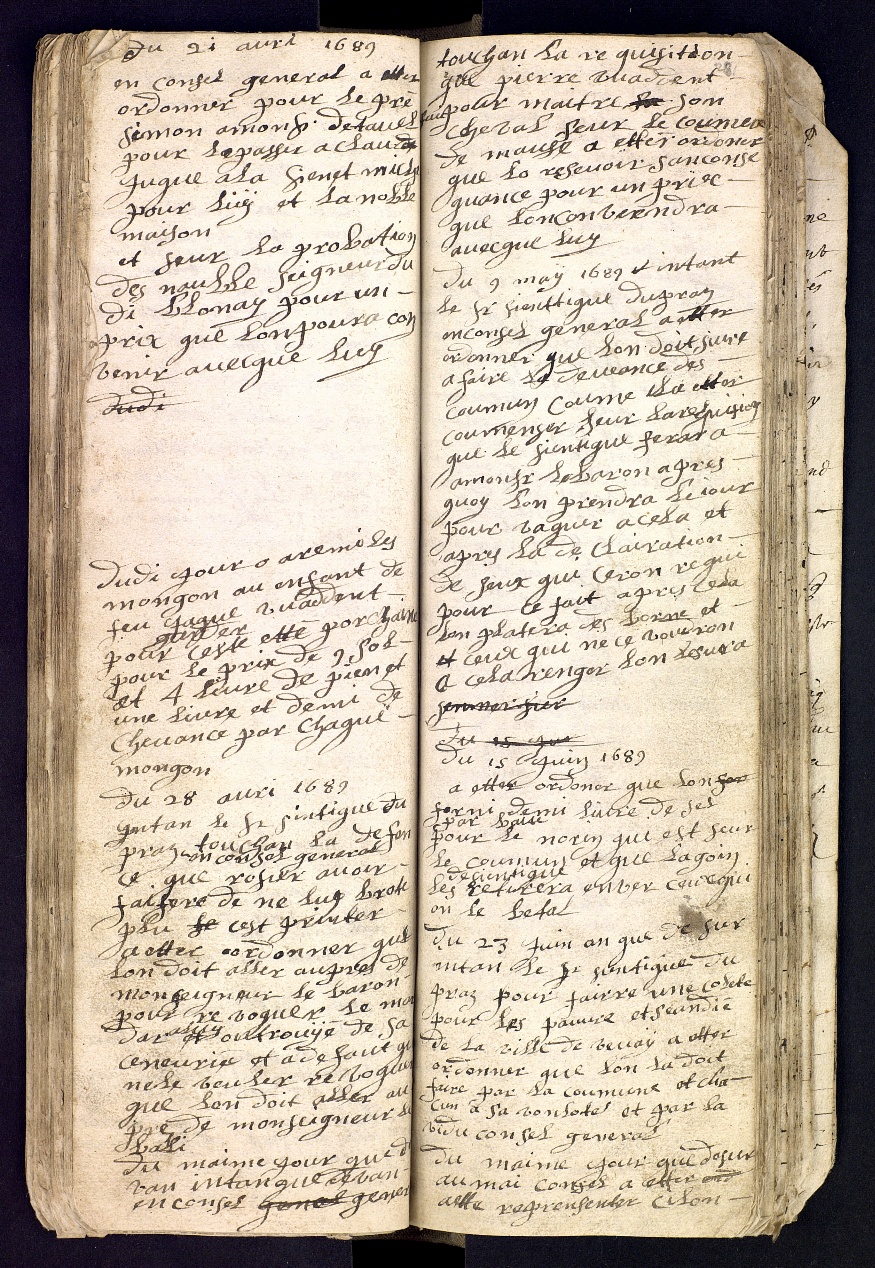 Du 21 auril 1689
en consel general a etter
ordonner pour le pre
simon amonsr detauel
pour le passer a claude
Juque a la sienet mille
pour luÿ et la noble
maison
et seur la probation
des nauble seigneur du
di blonay pour un
prix que lon poura con
uenir auecque luy
dudi
Dudi jour o aremi les
mongon au enfant de
feu Jaque uuaddent
garder
pour ceste etté porchaine
pour le prix de 9 sol
et 4 liure de pien et
une liure et demi de
cheuance par chaque
mongon
Du 28 auri 1689
intan le sr sintique du
praz touchan la defen
en consel general
ce que rosier auoir
faisere de ne luy
plu se cest printer
a etter ordonner que
lon doit aller aupres de
monseigneur le baron
pour reuoquer le man
dat outrouÿe de sa
ceneurie et a defaut
ne le uouler reuoquer
que lon doit aller au
pre de monseigneur le
bali
du maime jour que de
uan intan que deuan
en consel genel gener
touchan la requisition
que pierre uuaddent
fait pour maitre la son
cheual seur le coumun
de mause a etter ordoner
que lo reseuoir sanconse
quance pour un priec
que lonconuerendra
auecque luy
du 9 maÿ 1689 et intant
le sr sienttique dupraz
enconsel general a etter
ordonner que lon doit suire
a faire la deueance des
coumun coume ila etter
coumenser seur larequision
que le sientique ferara
amonsr lebaron apres
quoy lon prendra le jour
pour uaquer acela et
apres la de clairation
de seux qui ceron requi
pour ce fait apres cela
lon platera des borne et
et ceux qui ne ce uoudron
a cela renger lon lesura
Du 15 jui
Du 15 Juin 1689
a etter ordoner que lon for
forni demi liure de sel
par uau
pour le norin que est seur
le coumun et que lagoin
desientique
les retirera enuer ceuxqui
on le betal
du 23 juin an que de sur
intan le sr sintique du
praz pour fairre une colete
pour les pauure etseandié
de la uille de ueuay a etter
ordonner que lon la doit
faire par la coumune et cha
cun a sa uonlote et par la
uidu consel general
Du maime jour que desur
au mai consel a etter ord
aette reprensenter ci lon